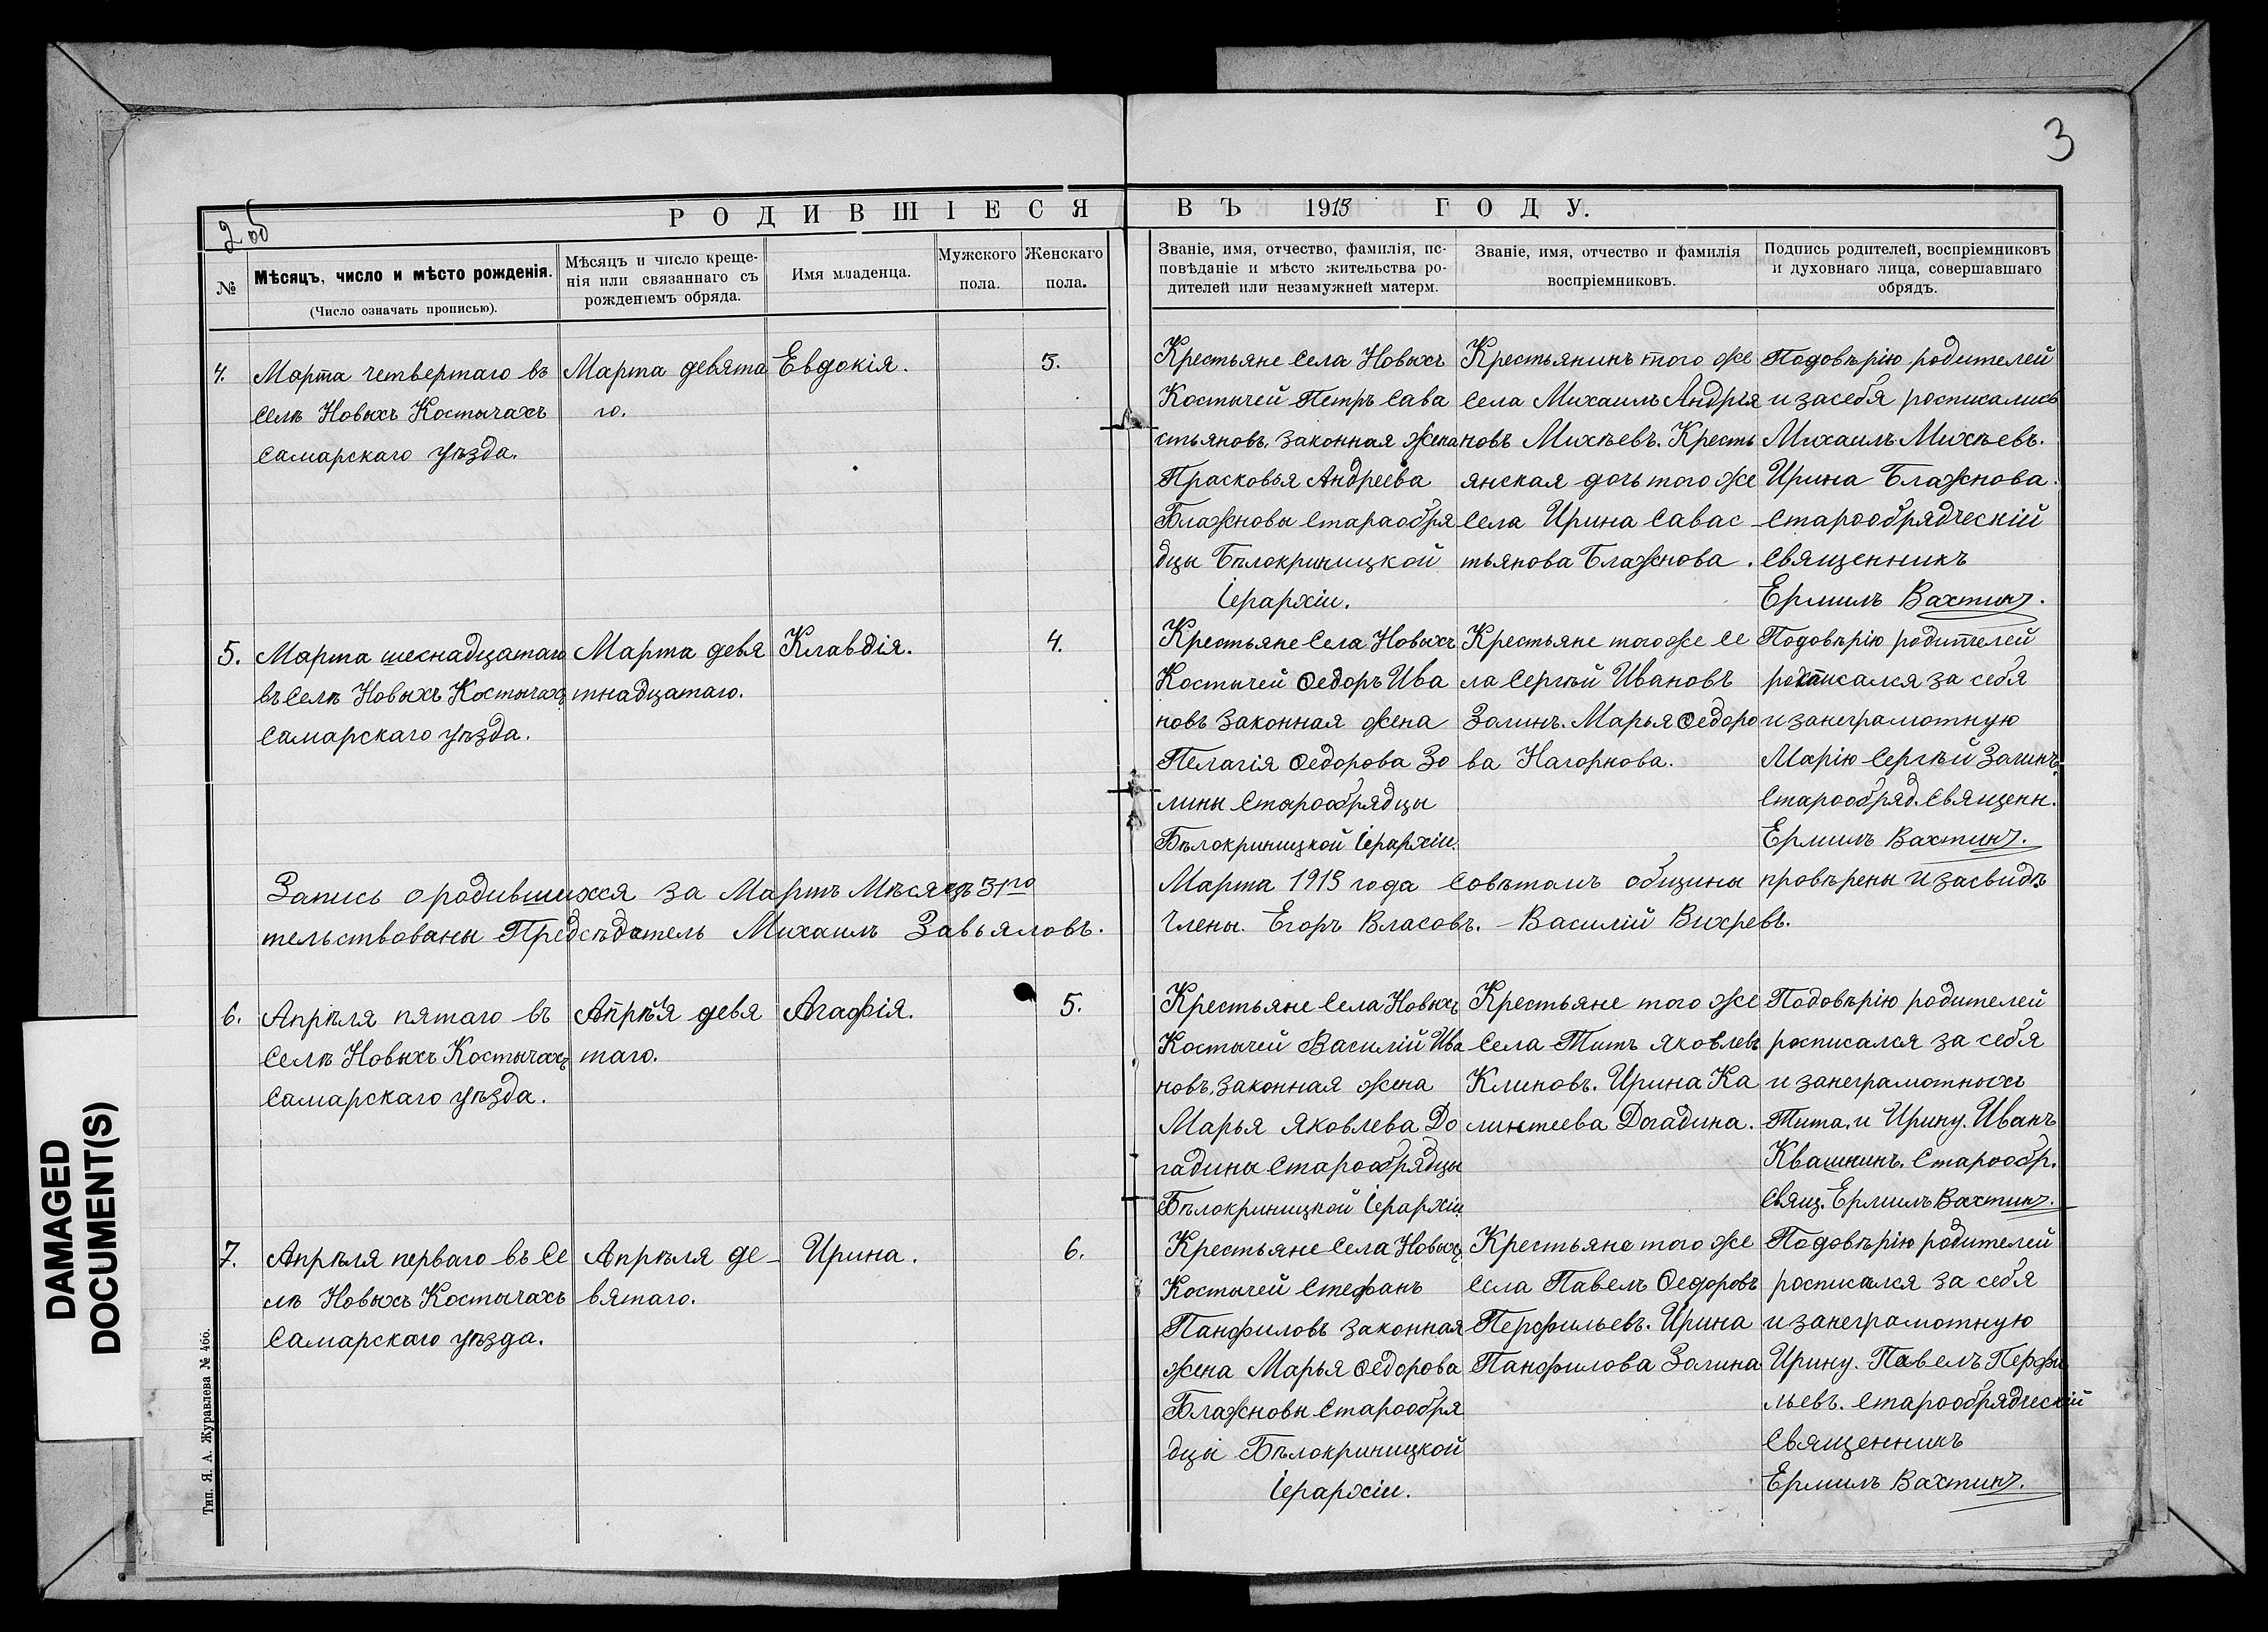 3
2 об
РОДИВШІЕСЯ ВЪ 1913 ГОДУ.
№
Мѣсяцъ, число и мѣсто рожденія.
(Число означать прописью).
Мѣсяцъ и число креще-
нія или связаннаго съ
рожденіемъ обряда.
Имя младенца.
Мужского
пола.
Женскаго
пола.
Званіе, имя, отчество, фамилія, ис-
повѣданіе и мѣсто жительства ро-
дителей или незамужней матерм.
Званіе, имя, отчество и фамилія
воспріемниковъ.
Подпись родителей, воспріемниковъ
и духовнаго лица, совершавшаго
обрядъ.
4.
Марта четвертаго въ
Селѣ Новыхъ Костычахъ
Самарскаго уѣзда.
Марта девята
го.
Евдокія.
3.
Крестьяне Села Новыхъ
Костычей Петръ Сава
стьяновъ. Законная жена
Прасковья Андреева
Блажновы Стараобря
дцы Бѣлокриницкой
Іерархіи.
Крестьянинъ того же
Села Михаилъ Андрія
новъ Михѣевъ. Кресть
янская дочь того же
Села Ирина Савас
тьянова Блажнова.
Подовѣрію родителей
и засебя росписались
Михаилъ Михѣевъ.
Ирина Блажнова.
Старообрядческій
Священникъ
Ермилъ Вахтинъ.
5.
Марта шеснадцатаго
въ Селѣ Новыхъ Костычахъ
Самарскаго уѣзда.
Марта девя
тнадцатаго.
Клавдія.
4.
Крестьяне Села Новыхъ
Костычей Ѳедоръ Ива
новъ Законная жена
Пелагія Ѳедорова Зо
лины Старообрядцы
Бѣлокриницкой Іерархіи.
Крестьяне того же Се
ла Сергѣй Ивановъ
Золинъ. Марья Ѳедоро
ва Нагорнова.
Подовѣрію родителей
росписался за себя
и занеграмотную
Марію Сергѣй Золинъ.
Старообряд. Священн.
Ермилъ Вахтинъ.
Запись о родившихся за Мартъ Мѣсяцъ 31го Марта 1913 года Совѣтомъ общины провѣрены и засвидѣ
тельствованы Предсѣдатель Михаилъ Завьяловъ. Члены. Егоръ Власовъ. - Василій Вихревъ.
6.
Апрѣля пятаго въ
Селѣ Новыхъ Костычахъ
Самарскаго уѣзда.
Апрѣля девя
таго.
Агафія.
5.
Крестьяне Села Новыхъ
Костычей Василій Ива
новъ, законная жена
Марья Яковлева До
гадины Старообрядцы
Бѣлокриницкой Іерархіи
Крестьяне того же
Села Титъ Яковлевъ
Клиновъ. Ирина Ка
линтеева Догадина.
Подовѣрію родителей
росписался за себя
и занеграмотныхъ
Тита, и Ирину. Иванъ
Квашнинъ. Старообр.
Свящ. Ермилъ Вахтинъ.
7.
Апрѣля перваго въ Се
лѣ Новыхъ Костычахъ
Самарскаго уѣзда.
Апрѣля де-
вятаго.
Ирина.
6.
Крестьяне Села Новыхъ
Костычей Стефанъ
Панфиловъ законная
жена Марья Ѳедорова
Блажновы Старообря
дцы Бѣлокриницкой
Іерархіи.
Крестьяне того же
Села Павелъ Ѳедоровъ
Перфильевъ. Ирина
Панфилова Золина
Подовѣрію родителей
росписался за себя
и занеграмотную
Ирину. Павелъ Перфи
льевъ. Старообрядческій
Священникъ
Ермилъ Вахтинъ.
Тип. Я. А. Журавлева № 466.
DAMAGED
DOCUMENT(S)